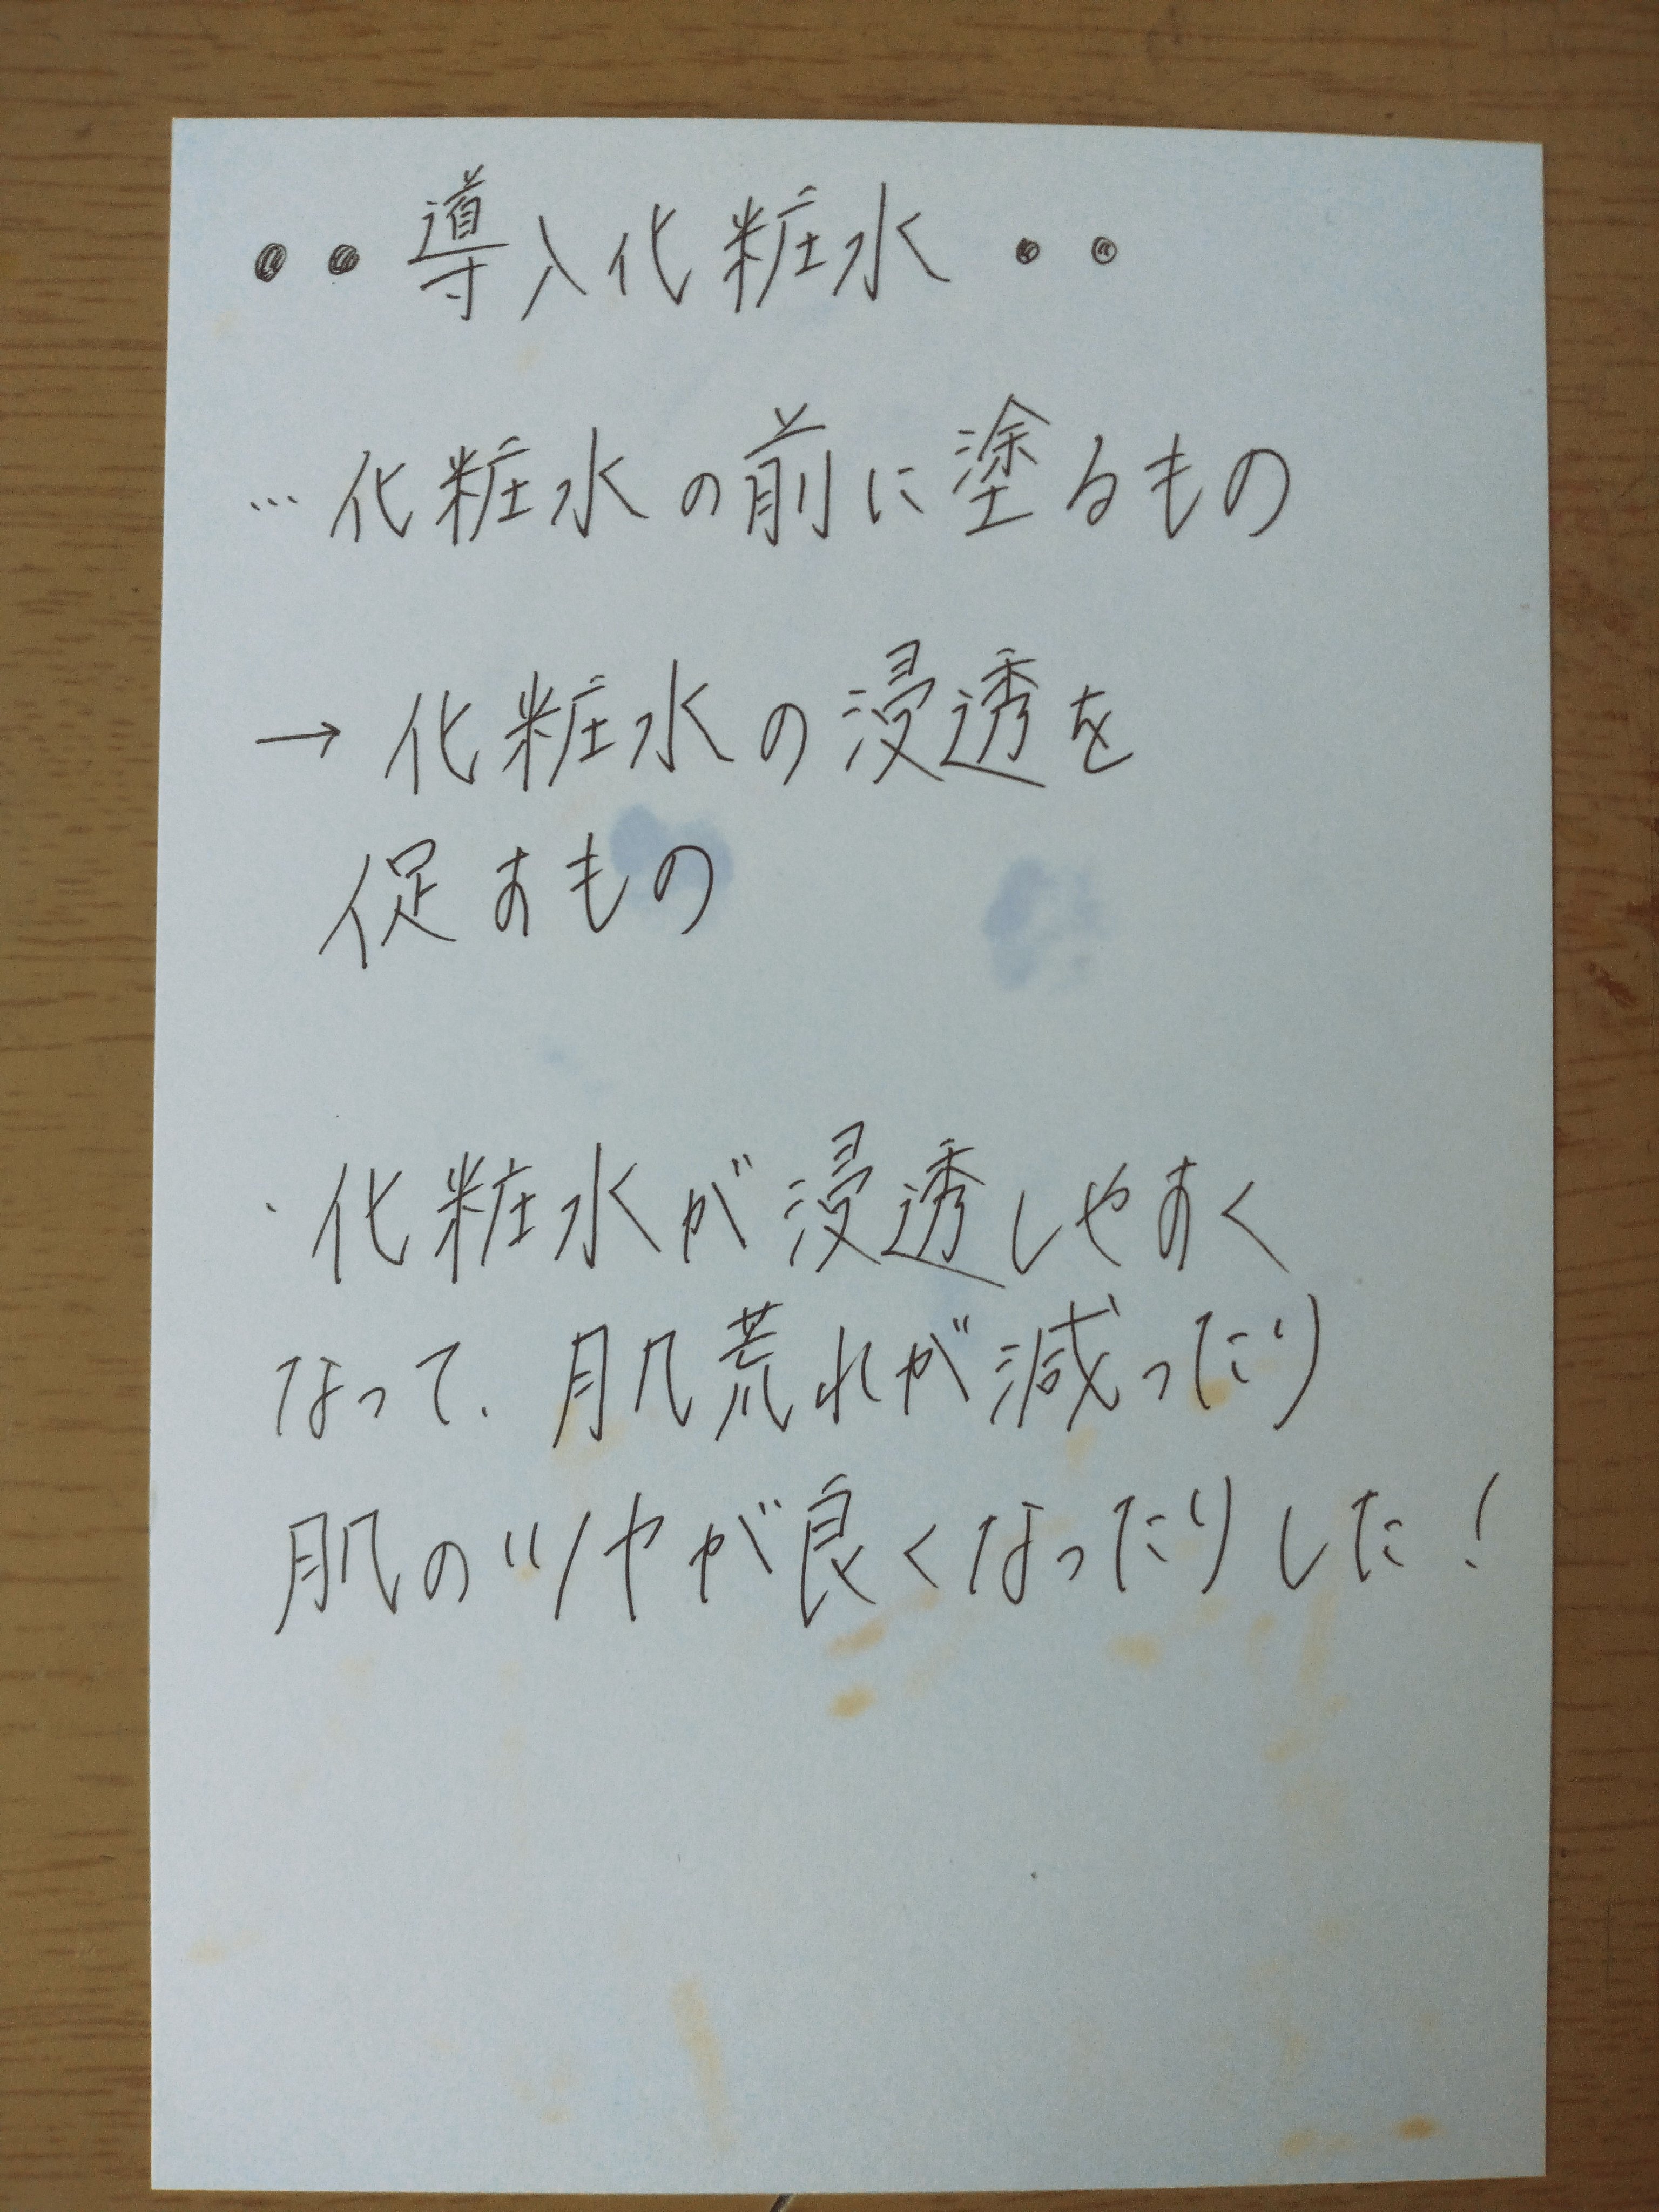 ••導入化粧水••
…化粧水の前に塗るもの
→化粧水の浸透を
促すもの
・化粧水が浸透しやすく
なって、肌荒れが減ったり
肌のツヤが良くなったりした!